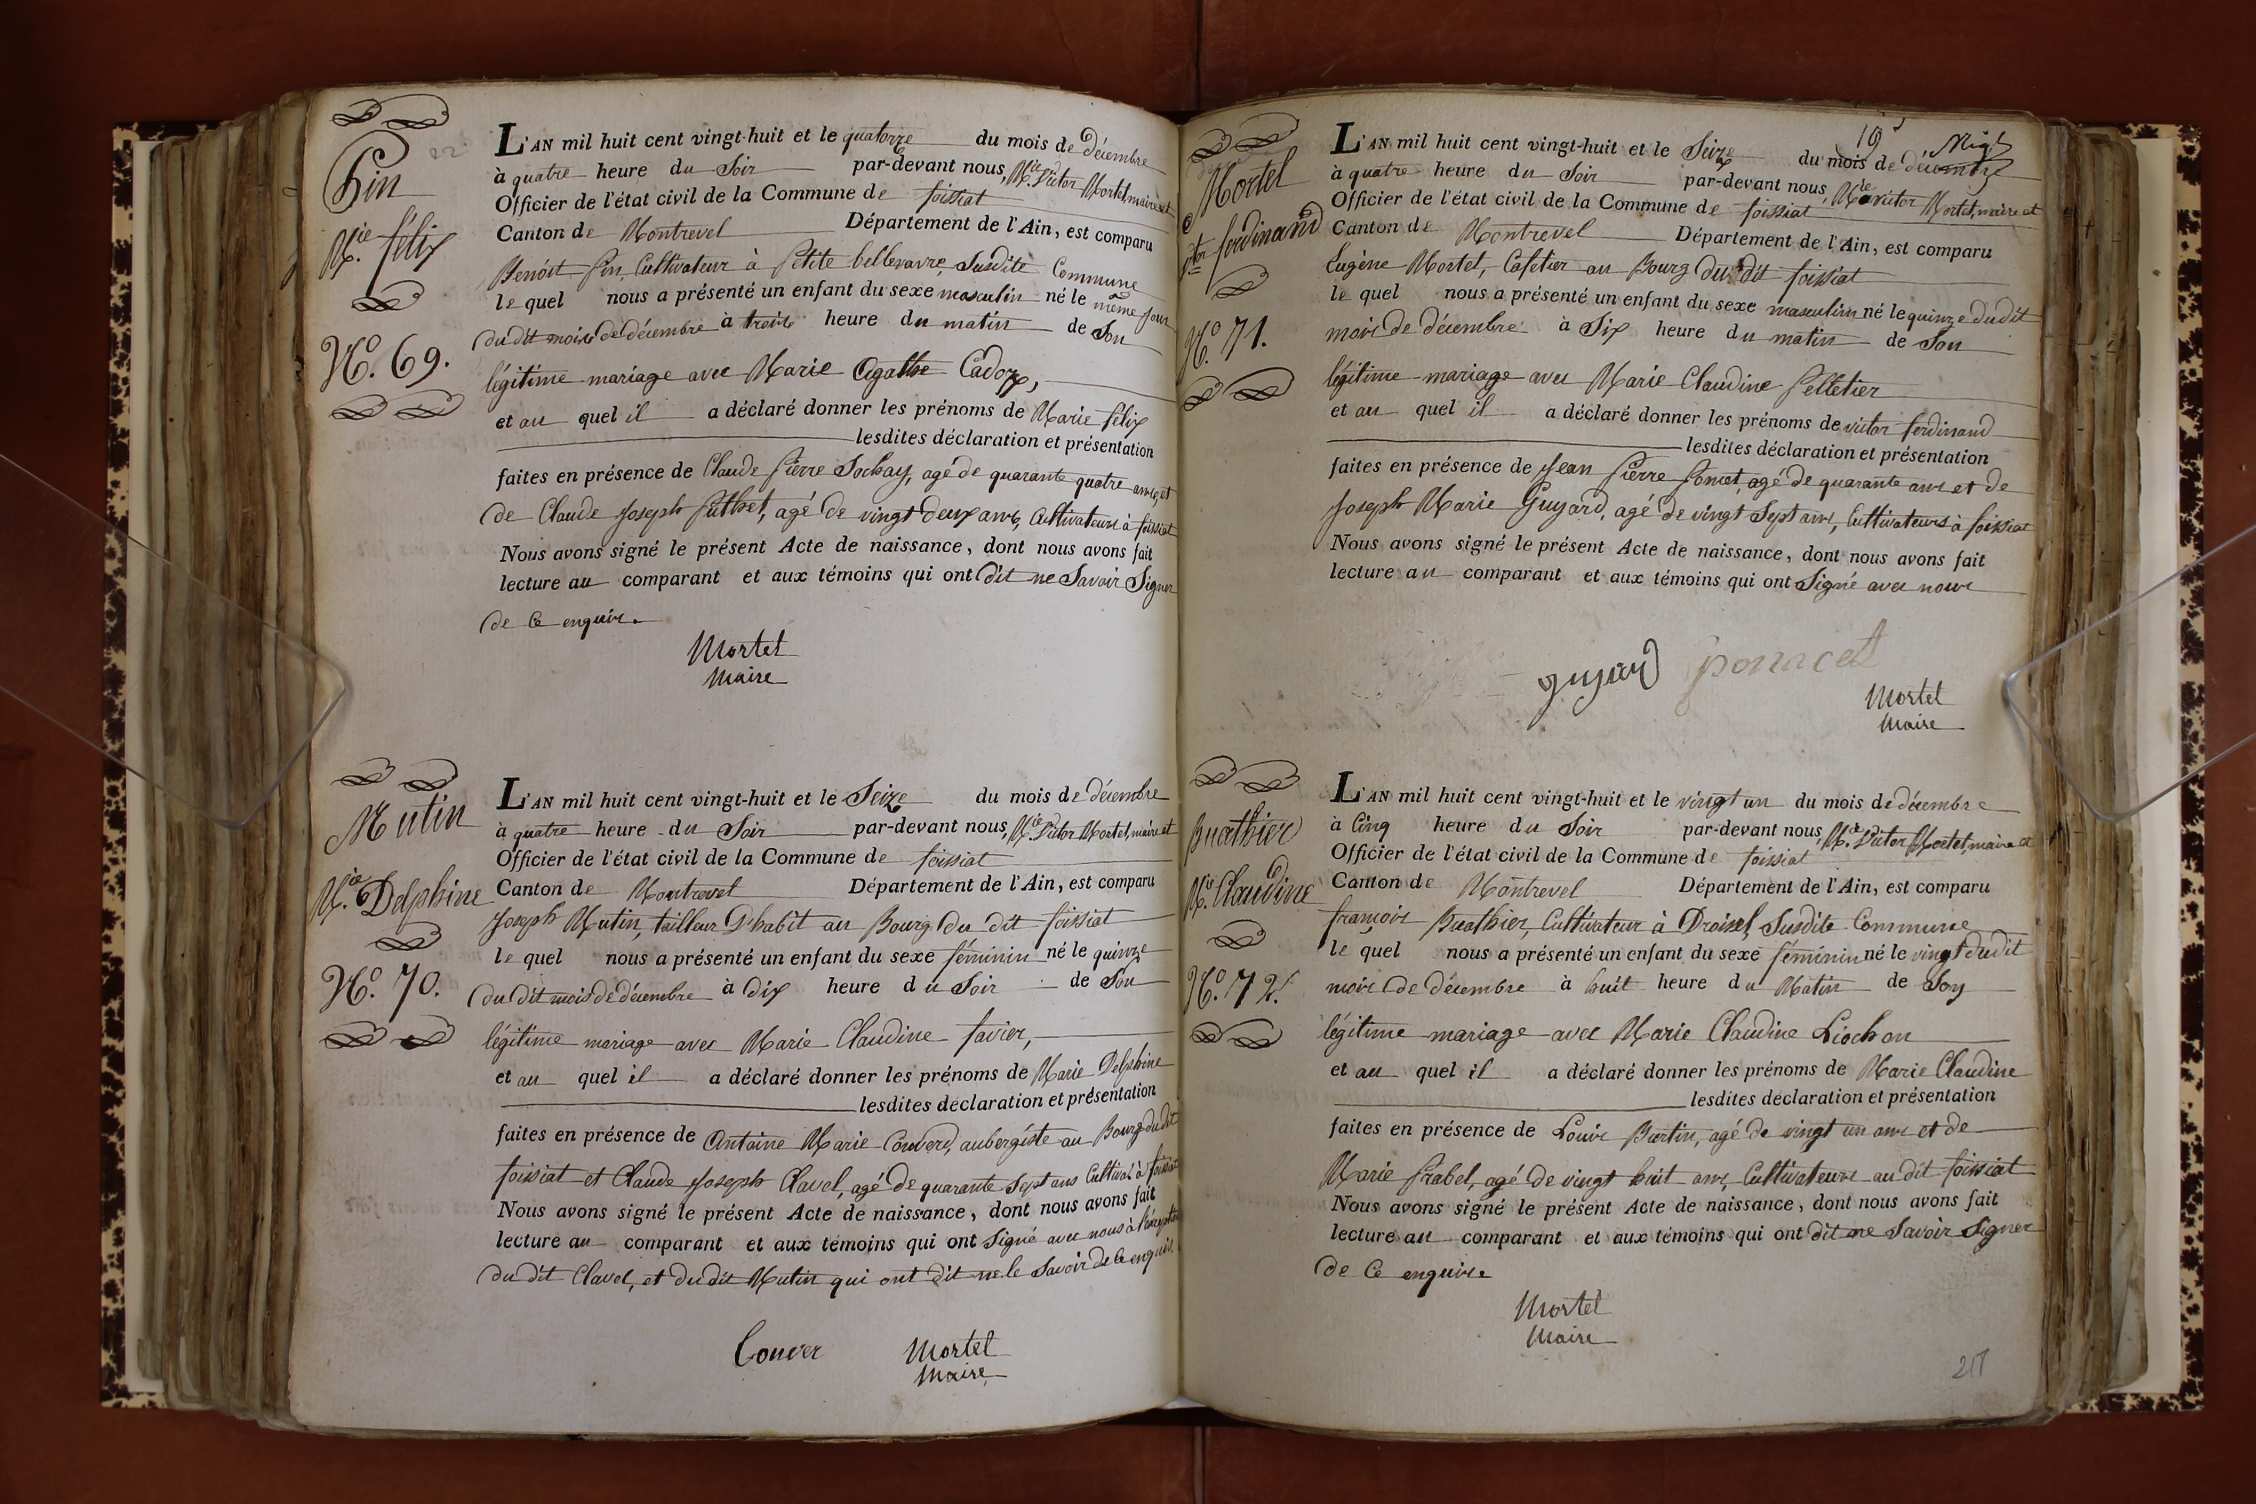 Pin
Mie. félix
No. 69.
L'AN mil huit cent vingt-huit et le quatorze du mois de décembre
à quatre heure du Soir par-devant nous, Mie. Victor Mortel, maire et
Officier de l'état civil de la Commune de foissiat
Canton de Montrevel Département de l'Ain, est comparu
Benoit Pin, Cultivateur à Petite bellevavre, Susdite Commune
le quel nous a présenté un enfant du sexe masculin né le même jour
du dit mois de décembre à trois heure du matin de Son
légitime mariage avec Marie Agathe Cadoz,
et au quel il a déclaré donner les prénoms de Marie félix
lesdites déclaration et présentation
faites en présence de Claude Pierre Sochay, agé de quarante quatre ans, et
de Claude Joseph Puthet, agé de vingt deux ans, Cultivateurs à foissiat
Nous avons signé le présent Acte de naissance, dont nous avons fait
lecture au comparant et aux témoins qui ont dit ne Savoir Signer
de ce enquis.
Mortel
Maire
Mutin
Mie. Delphine
No. 70.
L'AN mil huit cent vingt-huit et le Seize du mois de décembre
à quatre heure du Soir par-devant nous, Mie. Victor Mortel, maire et
Officier de l'état civil de la Commune de foissiat
Canton de Montrevel Département de l'Ain, est comparu
Joseph Mutin, tailleur D'habit au Bourg du dit foissiat
le quel nous a présenté un enfant du sexe féminin né le quinze
du dit mois de décembre à dix heure du Soir de Son
légitime mariage avec Marie Claudine favier,
et au quel il a déclaré donner les prénoms de Marie Delphine
lesdites déclaration et présentation
faites en présence de Antoine Marie Couverd, aubergiste au Bourg du dit
foissiat et Claude Joseph Clavel, agé de quarante Sept ans Cultivat. à foissiat
Nous avons signé le présent Acte de naissance, dont nous avons fait
lecture au comparant et aux témoins qui ont Signé avec nous à l'éxception
du dit Clavel, et du dit Mutin qui ont dit ne le Savoir de ce enquis
Couver
Mortel
Maire
Mortel
Victor ferdinand
No. 71.
L'AN mil huit cent vingt-huit et le Seize du mois de décembre
à quatre heure du Soir par-devant nous, Mie. Victor Mortel, maire et
Officier de l'état civil de la Commune de foissiat
Canton de Montrevel Département de l'Ain, est comparu
Eugène Mortel, Cafetier au Bourg du dit foissiat
le quel nous a présenté un enfant du sexe masculin né le quinze du dit
mois de décembre à Six heure du matin de Son
légitime mariage avec Marie Claudine Pelletier
et au quel il a déclaré donner les prénoms de victor ferdinand
lesdites déclaration et présentation
faites en présence de Jean Pierre Poncet, agé de quarante ans et de
Joseph Marie Guyard, agé de vingt Sept ans, Cultivateurs à foissiat
Nous avons signé le présent Acte de naissance, dont nous avons fait
lecture au comparant et aux témoins qui ont Signé avec nous
guyard ponacet
Mortel
Maire
Buathier
Mie. Claudine
No. 72.
L'AN mil huit cent vingt-huit et le vingt un du mois de décembre
à Cinq heure du Soir par-devant nous, Mie. Victor Mortel, maire et
Officier de l'état civil de la Commune de foissiat
Canton de Montrevel Département de l'Ain, est comparu
françois Buathier, Cultivateur à Susdite Commune
le quel nous a présenté un enfant du sexe féminin né le vingt du dit
mois de décembre à huit heure du Matin de Son
légitime mariage avec Marie Claudine Liochon
et au quel il a déclaré donner les prénoms de Marie Claudine
lesdites déclaration et présentation
faites en présence de Louis Burtin, agé de vingt un ans et de
Marie Prabel, agé de vingt huit ans, Cultivateurs au dit foissiat
Nous avons signé le présent Acte de naissance, dont nous avons fait
lecture au comparant et aux témoins qui ont dit ne Savoir Signer
de Ce enquis.
Mortel
Maire
217